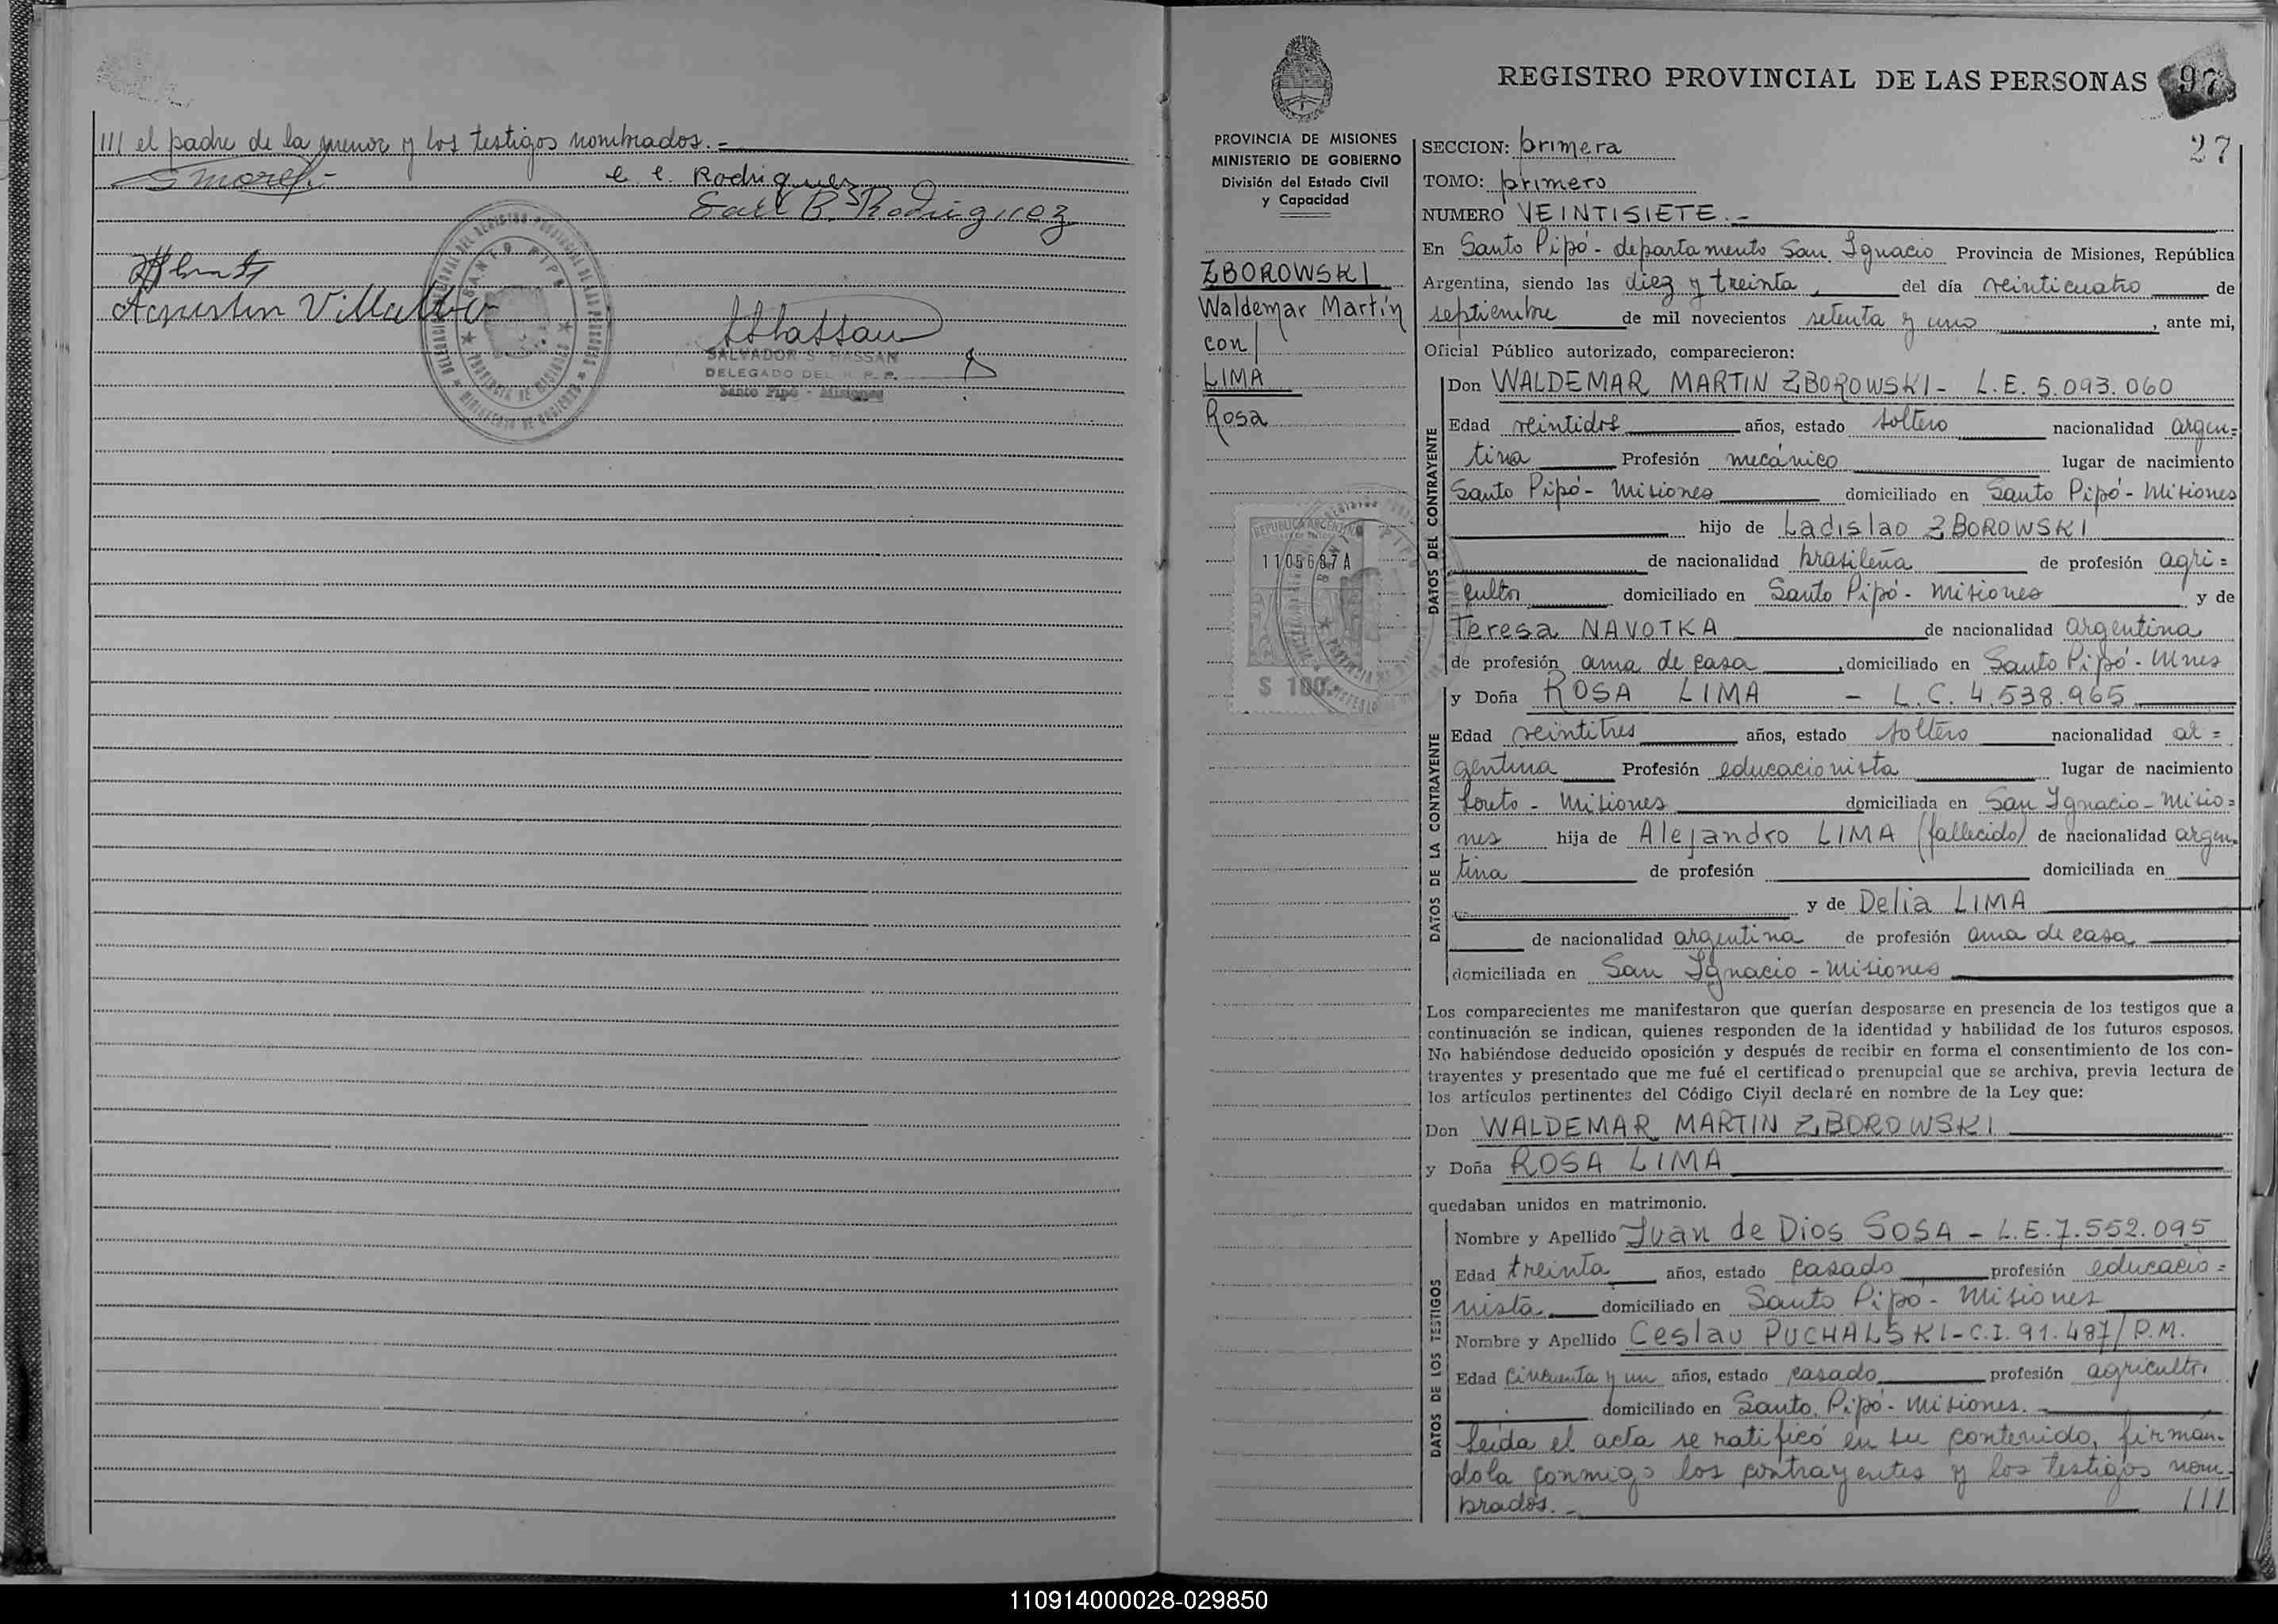 /// el padre de la menor y los testigos nombrados.-
e e. Rodriguez
Saul B. Rodriguez
Agustin Villalba
SANTO PIPO
PROVINCIA DE MISIONES
SALVADOR S. HASSAN
DELEGADO DEL R. P. P.
Santo Pipó - Misiones
REGISTRO PROVINCIAL DE LAS PERSONAS 97
27
PROVINCIA DE MISIONES
MINISTERIO DE GOBIERNO
División del Estado Civil
y Capacidad
ZBOROWSKI
Waldemar Martín
con
LIMA
Rosa
REPUBLICA ARGENTINA
11056687A
$ 100.-
SECCION: primera
TOMO: primero
NUMERO VEINTISIETE.-
En Santo Pipó - departamento San Ignacio Provincia de Misiones, República
Argentina, siendo las diez y treinta, del día veinticuatro de
septiembre de mil novecientos setenta y uno, ante mi,
Oficial Público autorizado, comparecieron:
DATOS DEL CONTRAYENTE
Don WALDEMAR MARTIN ZBOROWSKI - L.E. 5.093.060
Edad veintidos años, estado soltero nacionalidad argen=
tina Profesión mecánico lugar de nacimiento
Santo Pipó - Misiones domiciliado en Santo Pipó - Misiones
hijo de Ladislao ZBOROWSKI
de nacionalidad brasileña de profesión agri=
cultor domiciliado en Santo Pipó - Misiones y de
Teresa NAVOTKA de nacionalidad argentina
de profesión ama de casa, domiciliado en Santo Pipó - Mnes
DATOS DE LA CONTRAYENTE
y Doña ROSA LIMA - L.C. 4.538.965
Edad veintitres años, estado soltero nacionalidad ar=
gentina Profesión educacionista lugar de nacimiento
Loreto - Misiones domiciliada en San Ignacio - Misio=
nes hija de Alejandro LIMA (fallecido) de nacionalidad argen=
tina de profesión domiciliada en
y de Delia LIMA
de nacionalidad argentina de profesión ama de casa
domiciliada en San Ignacio - Misiones
Los comparecientes me manifestaron que querían desposarse en presencia de los testigos que a
continuación se indican, quienes responden de la identidad y habilidad de los futuros esposos.
No habiéndose deducido oposición y después de recibir en forma el consentimiento de los con-
trayentes y presentado que me fué el certificado prenupcial que se archiva, previa lectura de
los artículos pertinentes del Código Civil declaré en nombre de la Ley que:
Don WALDEMAR MARTIN ZBOROWSKI
y Doña ROSA LIMA
quedaban unidos en matrimonio.
DATOS DE LOS TESTIGOS
Nombre y Apellido Juan de Dios SOSA - L.E. 7.552.095
Edad treinta años, estado casado profesión educacio=
nista domiciliado en Santo Pipó - Misiones
Nombre y Apellido Ceslau PUCHALSKI - C.I. 91.487/P.M.
Edad cincuenta y un años, estado casado profesión agricultor
domiciliado en Santo Pipó - Misiones.-
Leida el acta se ratificó en su contenido, firman-
dola conmigo los contrayentes y los testigos nom-
brados.- ///
110914000028-029850